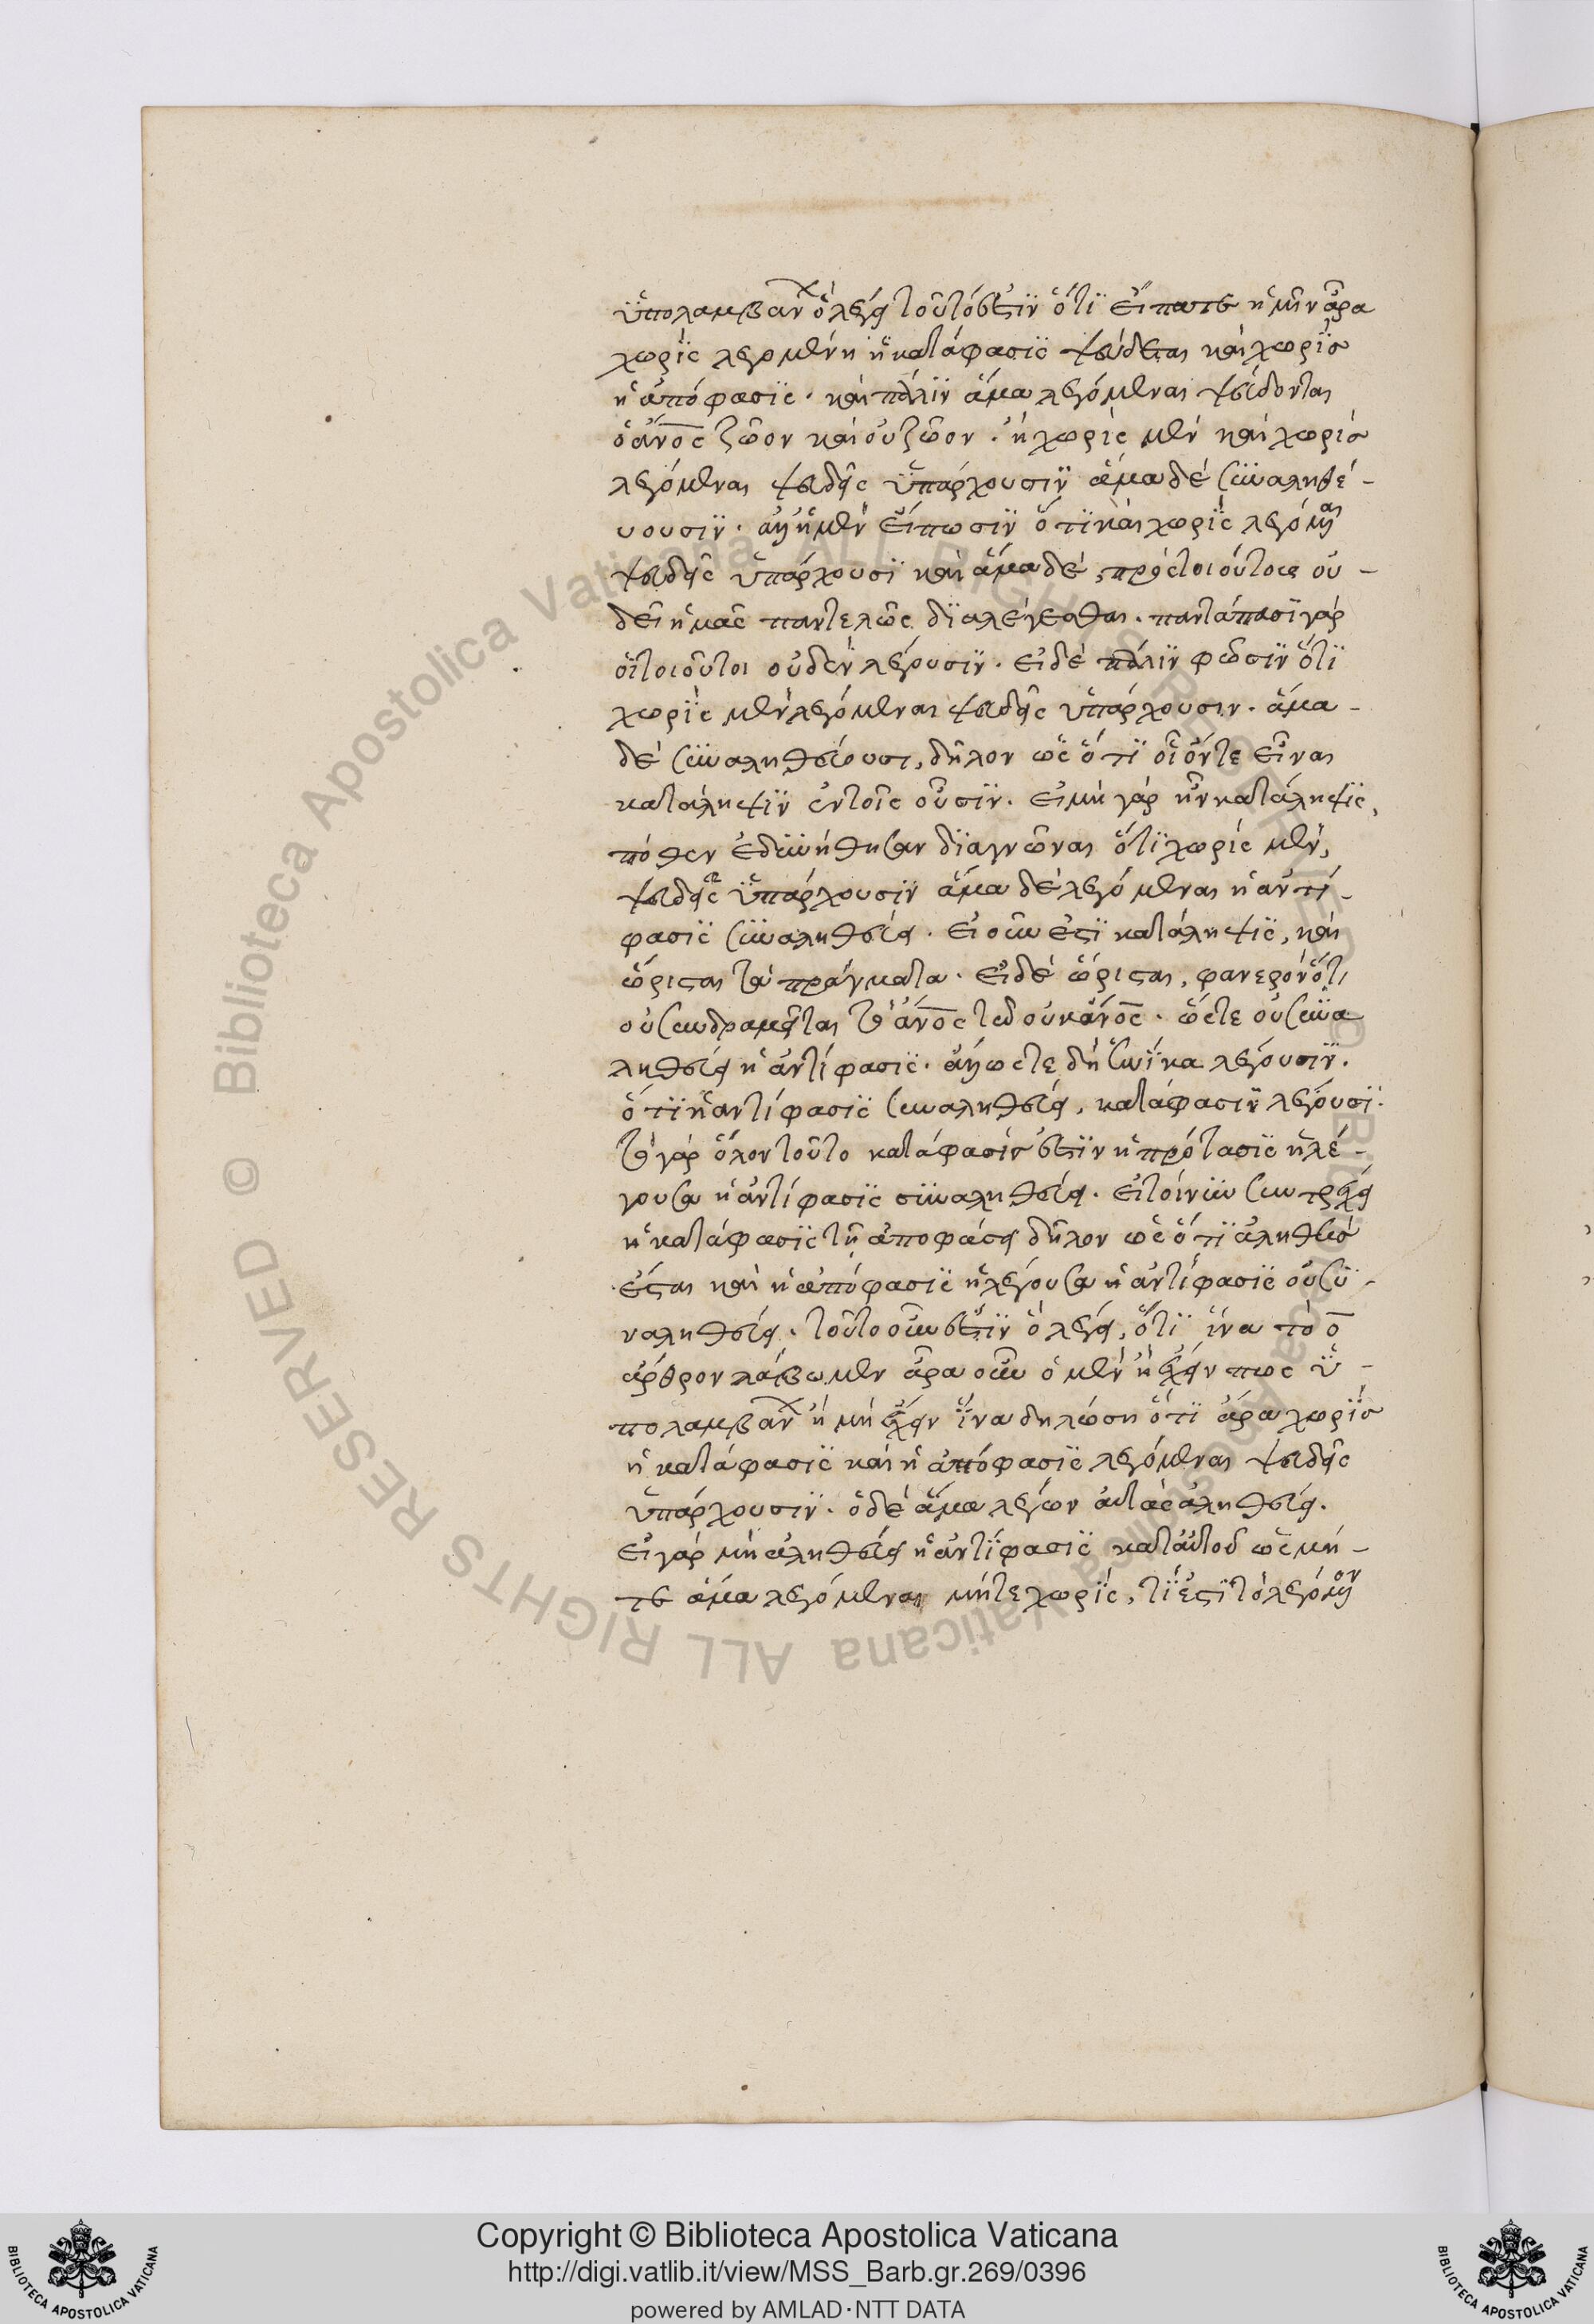 ὑπολαμβάν ὃ λέγει τοῦτό ἐστιν ὅτι εἴπατε ἡμῖν ἆρα
χωρὶς λεγομένη ἡ κατάφασις ψεύδεται καὶ χωρὶς
ἡ ἀπόφασις. καὶ πάλιν ἅμα λεγόμεναι ψεύδονται
ὁ ἄνος ζῶον καὶ οὐ ζῶον. ἢ χωρὶς μὲν καὶ χωρὶς
λεγόμεναι ψευδεῖς ὑπάρχουσιν ἅμα δὲ συναληθέ-
υουσιν. ἀλλ' εἰ μὲν εἴπωσιν ὅτι καὶ χωρὶς λεγόμεναι
ψευδεῖς ὑπάρχουσι καὶ ἅμα δέ, πρὸς τοιούτους οὐ-
δεῖ ἡμᾶς παντελῶς διαλέγεσθαι. παντάπασι γὰρ
οἱ τοιοῦτοι οὐδὲν λέγουσιν. εἰ δὲ πάλιν φῶσιν ὅτι
χωρὶς μὲν λεγόμεναι ψευδεῖς ὑπάρχουσιν. ἅμα-
δὲ συναληθεύουσι, δῆλον ὡς ὅτι οἴονται εἶναι
κατάληψιν ἐν τοῖς οὖσιν. εἰ μὴ γὰρ ἦν κατάληψις,
πόθεν ἐδυνήθησαν διαγνῶναι ὅτι χωρὶς μὲν,
ψευδεῖς ὑπάρχουσιν ἅμα δὲ λεγόμεναι ἡ ἀντί-
φασις συναληθεύει. εἰ οὖν ἐστὶ κατάληψις, καὶ
ὥρισται τὰ πράγματα. εἰ δὲ ὥρισται, φανερὸν ὅτι
οὐ συνδραμεῖται τὸ ἄνος τῶ οὐκ ἄνος. ὥστε οὐ συνα
ληθεύει ἡ ἀντίφασις. ἄλλως τε δὴ ἡνίκα λέγουσιν.
ὅτι ἡ ἀντίφασις συναληθεύει, κατάφασιν λέγουσι.
τὸ γὰρ ὅλον τοῦτο κατάφασίς ἐστιν ἡ πρότασις ἡ λέ-
γουσα ἡ ἀντίφασις συναληθεύει. εἰ τοίνυν συντρέχει
ἡ κατάφασις τῆ ἀποφάσει δῆλον ὡς ὅτι ἀληθὴς
ἔσται καὶ ἡ ἀπόφασις ἡ λέγουσα ἡ ἀντίφασις οὐ συ-
ναληθεύει. τοῦτο οὖν ἐστιν ὃ λέγει, ὅτι ἵνα τὸ ὁ
ἄρθρον λάβωμεν ἆρα οὖν ὁ μὲν ἢ ἔχειν πως ὑ-
πολαμβάν ἢ μὴ ἔχειν ἵνα δηλώση ὅτι ἆρα χωρὶς
ἡ κατάφασις καὶ ἡ ἀπόφασις λεγόμεναι ψευδεῖς
ὑπάρχουσιν. ὁ δὲ ἅμα λέγων αὐτὰς ἀληθεύει.
εἰ γὰρ μὴ ἀληθεύει ἡ ἀντίφασις κατ' αὐτοῦ ὡς μή-
τε ἅμα λεγόμεναι μήτε χωρὶς, τί ἐστὶ τὸ λεγόμενον
Copyright © Biblioteca Apostolica Vaticana
http://digi.vatlib.it/view/MSS_Barb.gr.269/0396
powered by AMLAD·NTT DATA